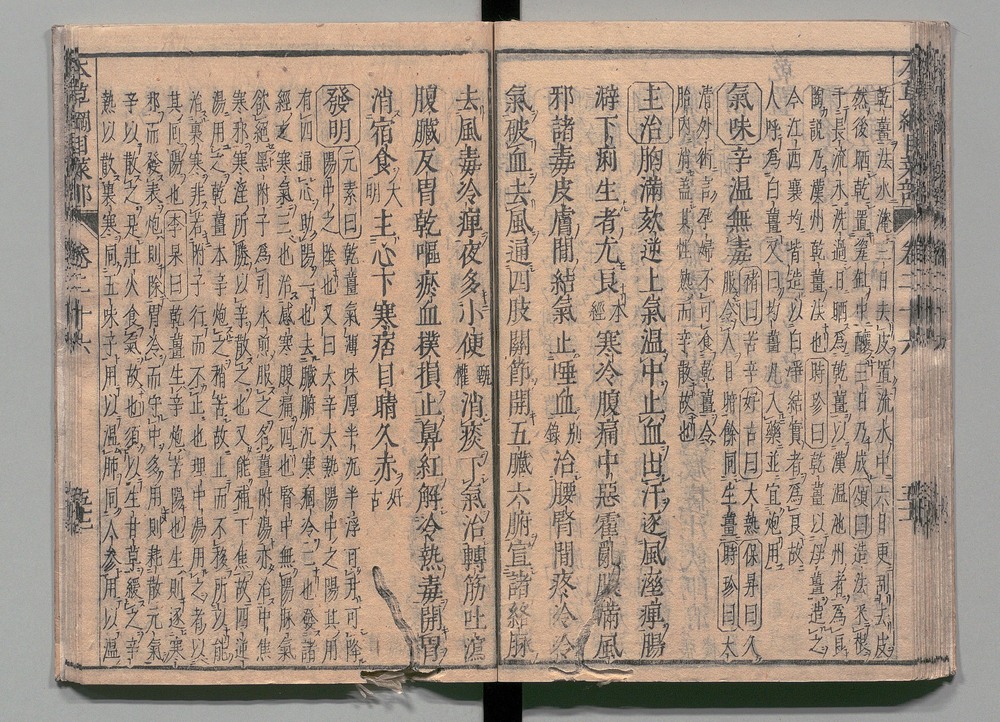 乾薑法水淹三日去皮置流水中六日更刮去皮
然後晒乾置瓷缸中釀三日乃成頌曰造法采根
于長流水洗過日晒爲乾薑以漢溫池州者爲良
陶說乃漢州乾薑法也時珍曰乾薑以母薑造之
今江西襄均皆造以白淨結實者爲良故
人呼爲白薑又曰均薑凡入藥並宜炮用
氣味辛溫無毒褚曰苦辛好古曰大熱保昇曰久
服令人目暗餘同生薑時珍曰太
清外術言孕婦不可食乾薑令
胎內消蓋其性熱而辛散故也
主治胸滿欬逆上氣溫中止血出汗逐風溼痺腸
澼下痢生者尤良本經寒冷腹痛中惡霍亂脹滿風
邪諸毒皮膚間結氣止唾血別錄治腰腎間疼冷冷
氣破血去風通四肢關節開五臟六腑宣諸絡脈
去風毒冷痺夜多小便甄權消痰下氣治轉筋吐瀉
腹臟反胃乾嘔瘀血撲損止鼻紅解冷熱毒開胃
消宿食大明主心下寒痞目睛久赤好古
發明元素曰乾薑氣薄味厚半沉半浮可升可降
陽中之陰也又曰大辛大熱陽中之陽其用
有四通心助陽一也去臟腑沉寒痼冷二也發諸
經之寒氣三也治感寒腹痛四也腎中無陽脈氣
欲絕黑附子爲引水煎服之名薑附湯亦治中焦
寒邪寒淫所勝以辛散之也又能補下焦故四逆
湯用之乾薑本辛炮之稍苦故止而不移所以能
治裏寒非若附子行而不止也理中湯用之者以
其回陽也李杲曰乾薑生辛炮苦陽也生則逐寒
邪而發表炮則除胃冷而守中多用則耗散元氣
辛以散之是壯火食氣故也須以生甘草緩之辛
熱以散裏寒同五味子用以溫肺同人參用以溫